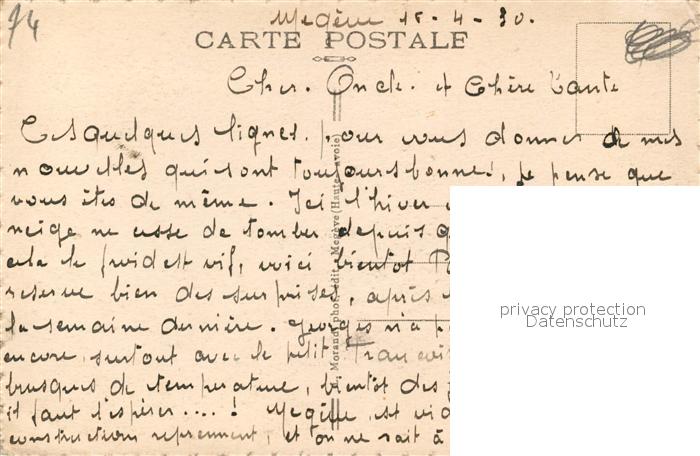 74
Megève 15-4-30.
CARTE POSTALE
Cher. Oncle. et Chère Tante
Ces quelques lignes. pour vous donner de mes
nouvelles qui sont toujours bonnes, je pense que
vous êtes de même. Ici l'hiver
neige ne cesse de tomber depuis
cela le froid est vif, voici bientôt
reserve bien des surprises, après
la semaine dernière. Georges n'a
encore, surtout avec le petit
brusques de temperature, bientôt des
il faut l'espérer....! Megève est
constructions reprennent, et l'on ne sait à
Morand, phot. édit., Megève (Haute-Savoie)
privacy protection
Datenschutz